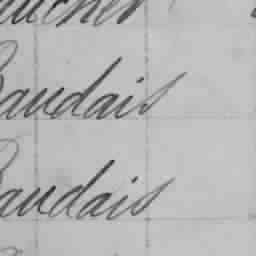 aucher
Baudais
Baudais